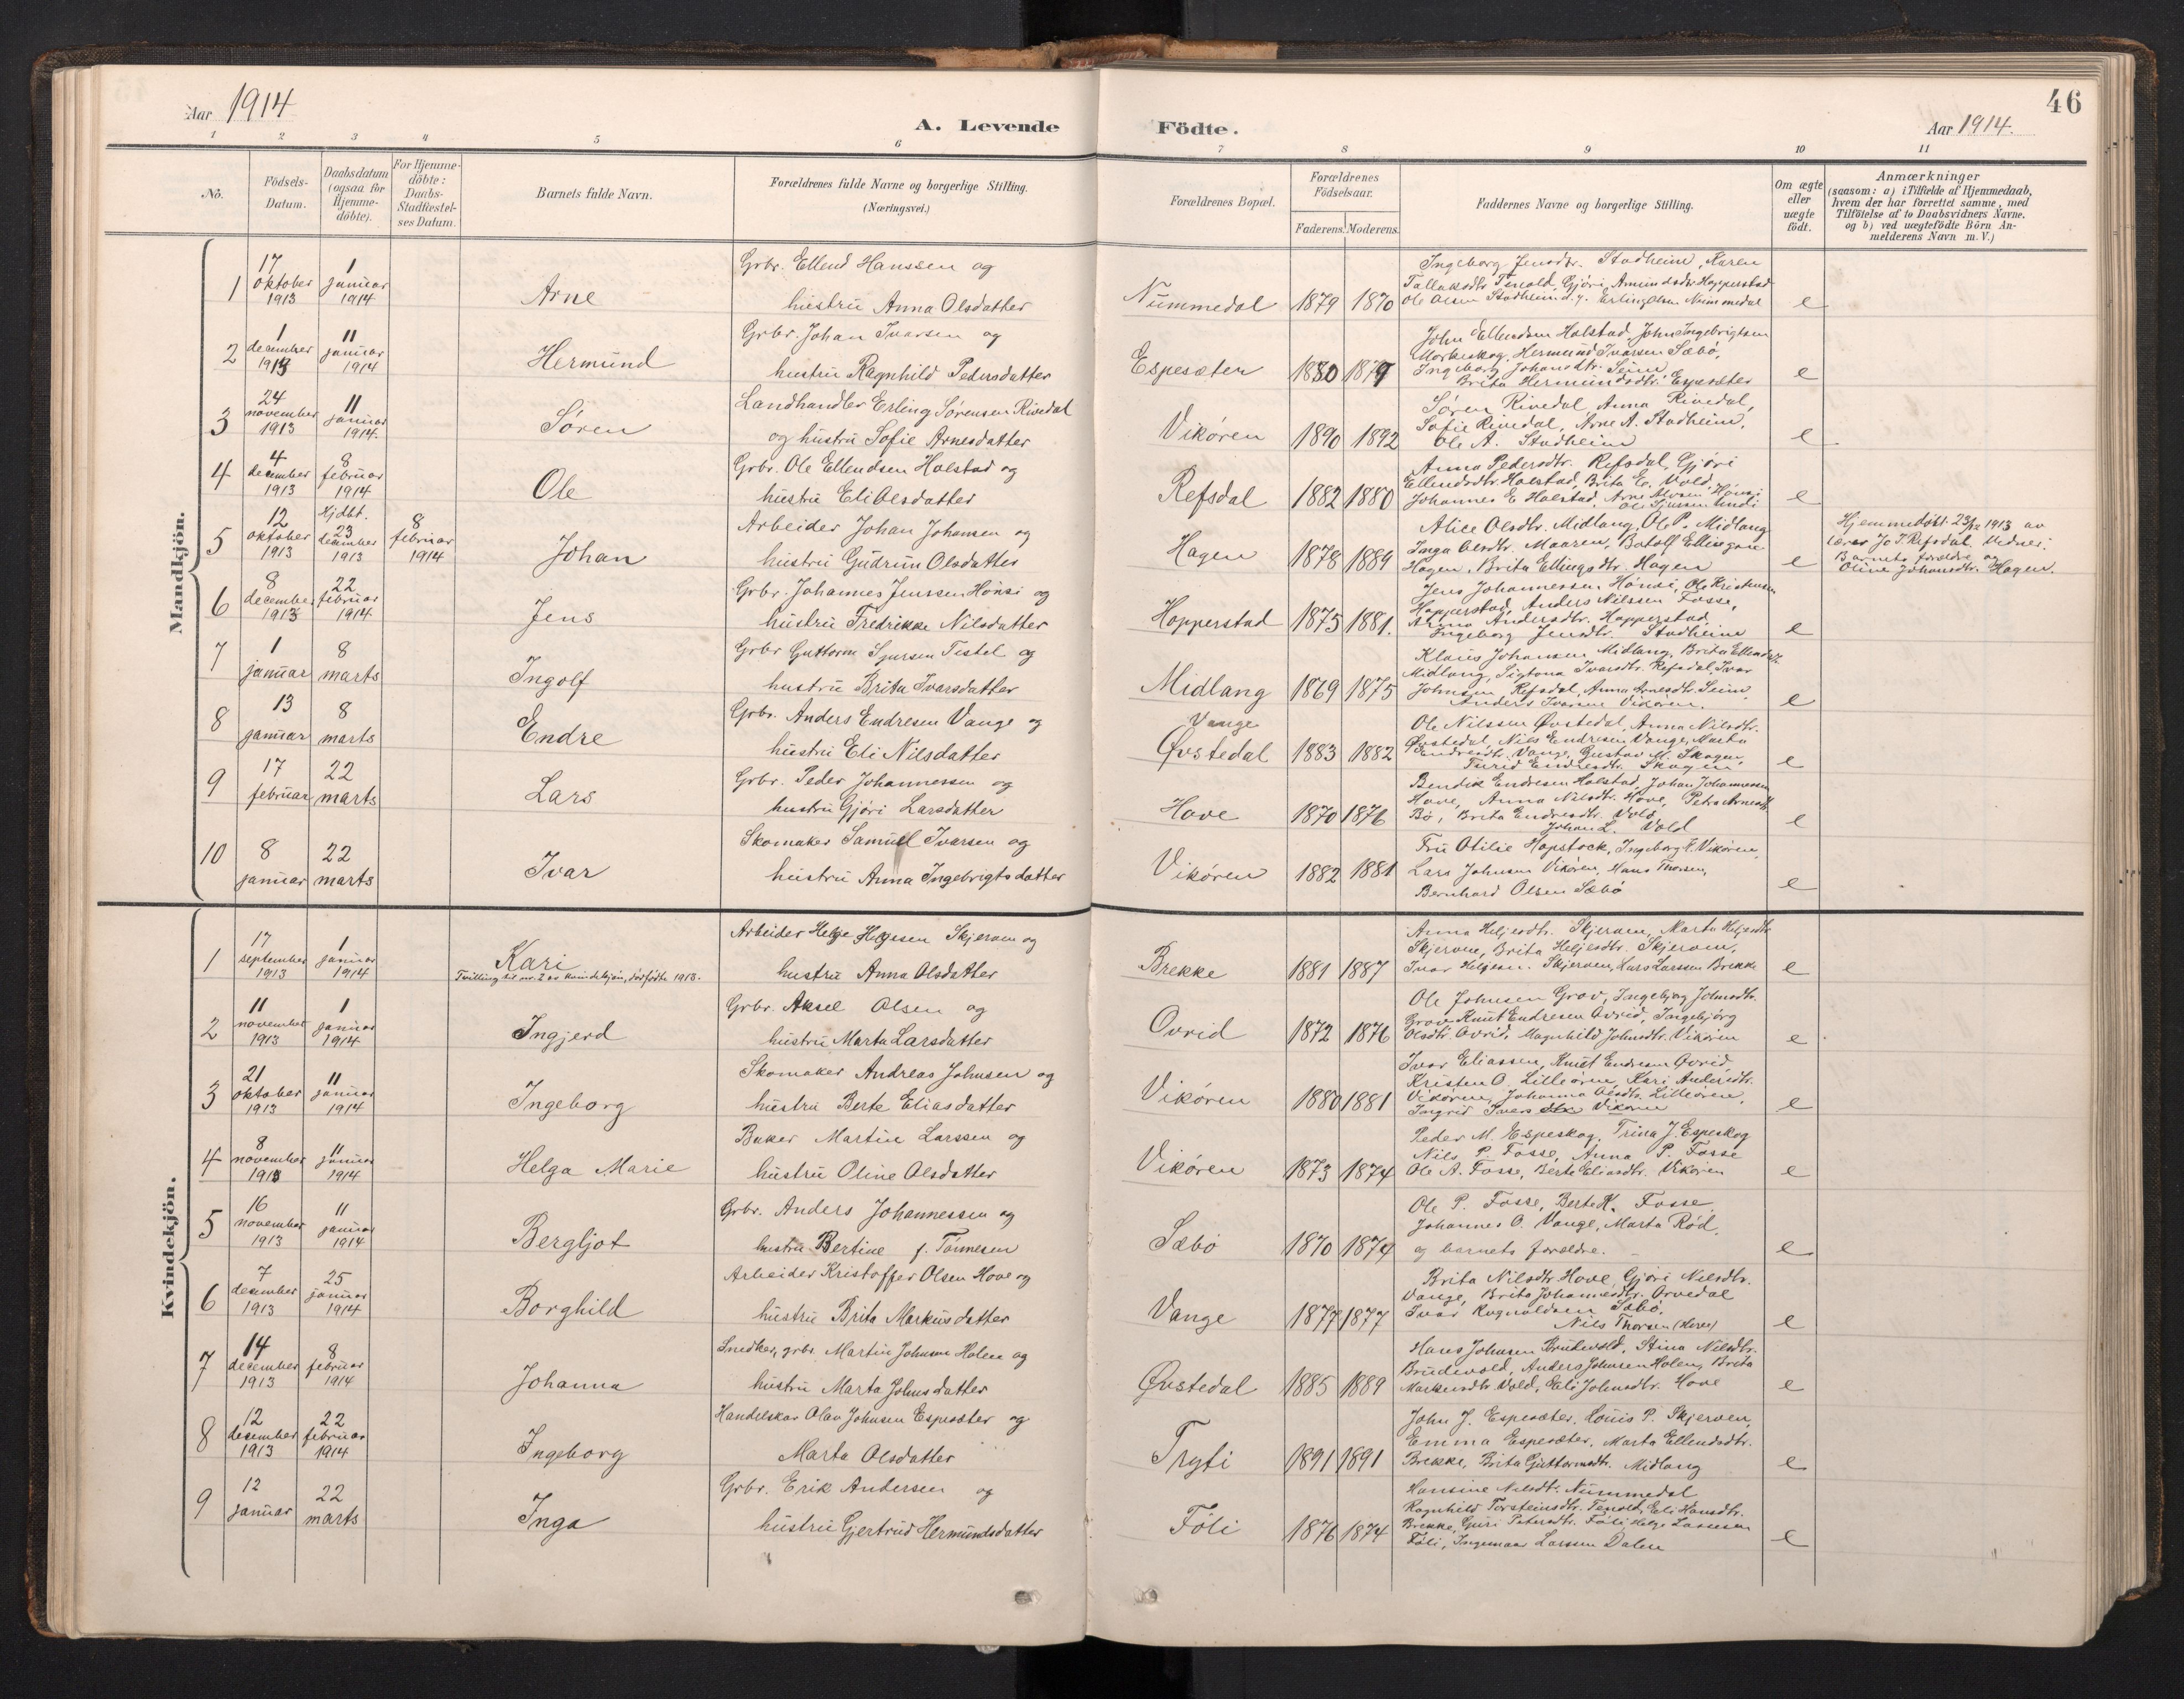 46
Aar 1914
A. Levende Födte.
Aar 1914.
1 2 3 4 5 6 7 8 9 10 11
No.
Födsels-Datum.
Daabsdatum (ogsaa for Hjemmedöbte).
For Hjemmedöbte: Daabs-Stadfæstelses Datum.
Barnets fulde Navn.
Forældrenes fulde Navne og borgerlige Stilling. (Næringsvei.)
Forældrenes Bopæl.
Forældrenes Födselsaar.
Faderens. Moderens.
Faddernes Navne og borgerlige Stilling.
Om ægte eller uægte födt.
Anmærkninger
(saasom: a) i Tilfælde af Hjemmedaab, hvem der har forrettet samme, med Tilföielse af to Daabsvidners Navne, og b) ved uægtefödte Börn Anmelderens Navn m. V.)
Mandkjön.
1
17 oktober 1913
1 januar 1914
Arne
Grbr. Ellend Hanssen og
hustru Anna Olsdatter
Nummedal
1879 1870
Ingeborg Jensdtr. Stadheim, Karen
Tallaksdtr. Tenold, Gjöri Amundsdtr. Hopperstad
Ole Olsen Stadheim d.y. Erling Olsen Nummedal
e
2
1 december 1913
11 januar 1914
Hermund
Grbr. Johan Ivarsen og
hustru Ragnhild Pedersdatter
Espesæter
1880 1879
John Ellendsen Halstad, John Ingebrigtsen
Morkeskog, Hermund Ivarsen Sæbö,
Ingeborg Johansdtr. Seim,
Brita Hermundsdtr. Espesæter
e
3
24 november 1913
11 januar 1914.
Sören
Landhandler Erling Sørensen Rivedal
og hustru Sofie Arnesdatter
Vikören
1890 1892
Søren Rivedal, Anna Rivedal,
Sofie Rivedal, Arne A. Stadheim,
Ole A. Stadheim
e
4
4 december 1913
8 februar 1914
Ole
Grbr. Ole Ellendsen Halstad og
hustru Eli Olsdatter
Refsdal
1882 1880
Anna Pedersdtr. Refsdal, Gjöri
Ellendsdtr. Halstad, Brita E. Vold,
Johannes E. Halstad, Arne Hönsi,
e
5
12 oktober 1913
Hjdbt. 23 december 1913
8 februar 1914
Johan
Arbeider Johan Johansen og
hustru Gudrun Olsdatter
Hagen
1878 1889
Alice Olsdtr. Midlang, Ole P. Midlang
Inga Olsdtr. Maaren, Botolf Ellingsen
Hagen, Brita Ellingsdtr. Hagen
e
Hjemmedöbt 23/12 1913 av
lærer Jo T. Refsdal. Vidner:
Barnets forældre og
Oline Johansdtr. Hagen.
6
8 december 1913
22 februar 1914
Jens
Grbr. Johannes Jenssen Hönsi og
hustru Fredrikke Nilsdatter
Hopperstad
1875 1881.
Jens Johannessen Hönsi, Ole Kristensen
Hopperstad, Anders Nilssen Fosse,
Anna Andersdtr. Hopperstad,
Ingeborg Jensdtr. Stadheim
e
7
1 januar
8 marts
Ingolf
Grbr Guttorm Sjursen Tistel og
hustru Brita Ivarsdatter
Midlang
1869 1875
Klaus Johansen Midlang, Brita Ellendsdtr.
Midlang, Sigtona Ivarsdtr. Refsdal, Ivar
Johnsen Refsdal, Anna Arnesdtr. Seim,
Anders Ivarsen Vikören.
e
8
13 januar
8 marts
Endre
Grbr. Anders Endresen Vange og
hustru Eli Nilsdatter
Vange
Øvstedal
1883 1882
Ole Nilssen Øvstedal, Anna Nilsdtr.
Øvstedal, Nils Endresen Vange, Marta
Endresdtr. Vange, Gustav M. Skagen,
Turid Endresdtr. Skagen
e
9
17 februar
22 marts
Lars
Grbr. Peder Johannessen og
hustru Gjöri Larsdatter
Hove
1870 1876
Bendik Endresen Halstad, Johan Johannessen
Hove, Anna Nilsdtr. Hove, Petra Arnesdtr.
Bö, Brita Endresdtr. Vold,
Johan L. Vold
e
10
8 januar
22 marts
Ivar
Skomaker Samuel Ivarsen og
hustru Anna Ingebrigtsdatter
Vikören
1882 1881
Fru Otilie Hopstock, Ingeborg E. Vikören,
Lars Johnsen Vikören, Hans Thorsen,
Bernhard Olsen Sæbö
e
Kvindekjön.
1
17 september 1913
1 januar 1914
Kari
Tvilling til nr. 2 av kvindekjön, dödfödte 1913.
Arbeider Helge Helgesen Skjerven og
hustru Anna Olsdatter
Brekke
1881 1887
Anna Heljesdtr. Skjerven, Marta Heljesdtr.
Skjerven, Brita Heljesdtr. Skjerven,
Ivar Helgesen Skjerven, Lars Larssen Brekke
e
2
11 november 1913
1 januar 1914
Ingjerd
Grbr. Aksel Olsen og
hustru Marta Larsdatter
Ovrid
1872 1876
Ole Johnsen Grov, Ingebjörg Johnsdtr.
Grov, Knut Endresen Ovrid, Ingebjörg
Olsdtr. Ovrid, Magnhild Johnsdtr. Vikören
e
3
21 oktober 1913
11 januar 1914
Ingeborg
Skomaker Andreas Johnsen og
hustru Berte Eliasdatter
Vikören
1880 1881
Ivar Eliassen, Knut Endresen Ovrid,
Kristen O. Lilleören, Kari Andersdtr.
Vikören, Johanna Olsdtr. Lilleören,
Ingrid Iversdtr. Vikören
e
4
8 november 1913
11 januar 1914
Helga Marie
Baker Martin Larssen og
hustru Oline Olsdatter
Vikören
1873 1874
Peder M. Espeskog, Trina J. Espeskog
Nils P. Fosse, Anna P. Fosse
Ole A. Fosse, Berte Eliasdtr. Vikören
e
5
16 november 1913
11 januar 1914
Bergljot
Grbr. Anders Johannessen og
hustru Bertine f. Tönnesen
Sæbö
1870 1874
Ole P. Fosse, Berte K. Fosse,
Johannes O. Vange, Marta Röd,
og barnets forældre.
e
6
7 december 1913
25 januar 1914
Borghild
Arbeider Kristoffer Olsen Hove og
hustru Brita Markusdatter
Vange
1877 1877
Brita Nilsdtr. Hove, Gjöri Nilsdtr.
Vange, Brita Johannesdtr. Orvedal
Ivar Ragnvaldsen Sæbö,
Nils Thorsen (Hove)
e
7
14 december 1913
8 februar 1914
Johanna
Snedker, grbr. Martin Johnsen Holen og
hustru Marta Johnsdatter
Øvstedal
1885 1889
Hans Johnsen Brudevold, Stina Nilsdtr.
Brudevold, Anders Johnsen Holen, Brita
Markusdtr. Vold, Eli Johnsdtr. Hove
e
8
12 december 1913
22 februar 1914
Ingeborg
Handelskar Olav Johnsen Espesæter og
Marta Olsdatter
Tryti
1891 1891
John J. Espesæter, Louis P. Skjerven,
Emma Espesæter, Marta Ellendsdtr.
Brekke, Brita Guttormsdtr. Midlang
e
9
12 januar
22 marts
Inga
Grbr. Erik Andersen og
hustru Gjertrud Hermundsdatter
Föli
1876 1874
Hansine Nilsdtr. Nummedal
Ragnhild Torsteinsdtr. Tenold, Eli Hansdtr.
Brekke, Guri Petersdtr. Föli, Helge Larssen
Föli, Ingemar Larssen Dalen
e